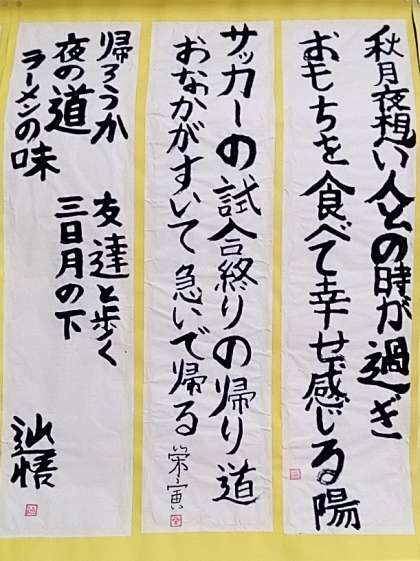 秋月夜想い人との時が過ぎ
おもちを食べて幸せ感じる陽
サッカーの試合終りの帰り道
おなかがすいて急いで帰る
栄寅
帰ろうか
夜の道
ラーメンの味
友達と歩く
三日月の下
辿悟